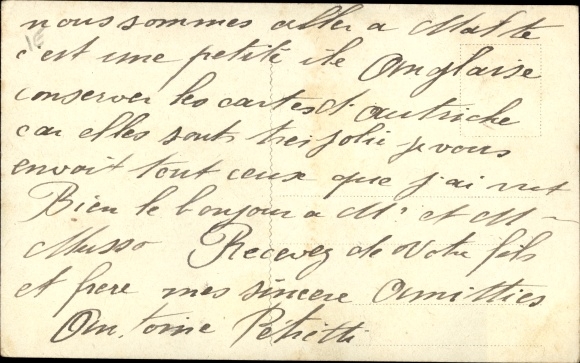 nous sommes aller a Malte
c'est une petite ile Anglaise
conserver les cartes d'autriche
car elles sont tres jolie je vous
envoit tout ceux que j'ai vut
Bien le bonjour a Mr et Mme
Musso Recevez de votre fils
et frere mes sincere amitties
Antoine Pétretti